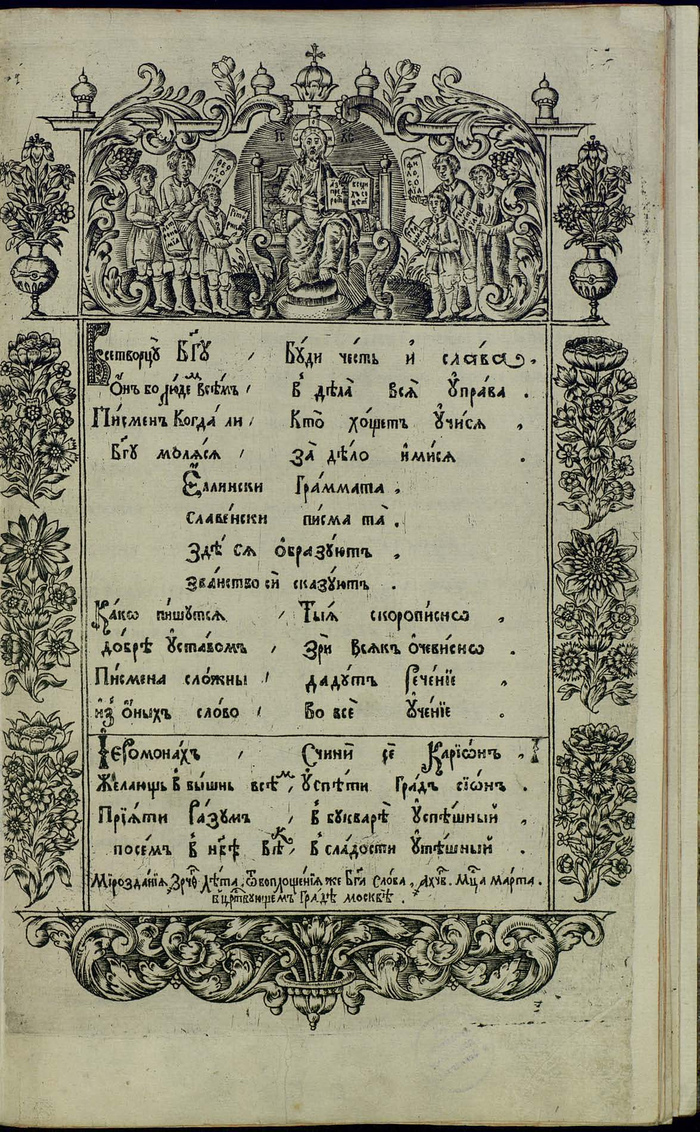 ІС ХС
Всетворцꙋ Бг҃ꙋ / Бꙋди че́сть и҆ сла́ва ,
Ѻ҆́нъ бо лю́демъ всѣ́мъ / в̾ дѣ́ла всѧ̑ ᲂу҆пра́ва .
Пи́сменъ когда́ ли / Кто̀ хо́щетъ ᲂу҆чи́сѧ ,
Бг҃ꙋ молѧ́сѧ / За̀ дѣ́ло и҆ми́сѧ .
Е҆́ллински Гра́ммата ,
славе́нски писма та̑ .
Здѣ́ сѧ ѻ҆бразꙋ́ютъ ,
зва́нство сѝ сказꙋ́ютъ .
Ка́кѡ пи́шꙋтсѧ / Ты́ѧ скоропи́снѡ ,
до́брѣ ᲂу҆ста́вомъ / Зрѝ всѧ́къ ѻ҆че́виснѡ .
Пи́смена сло́жны / даду́тъ рече́нїе ,
и҆з̾ ѻ҆́ныхъ сло́во / Во всѐ ᲂу҆че́нїе .
І҆еромона́хъ / Счинѝ сѐ Карїѡ́нъ ,
Жела́ющь в̾ вы́шнь всѣ́мъ / ᲂу҆спѣ́ти Гра́дъ сїѡ́нъ .
Прїѧ́ти ра́зꙋмъ / в̾ бꙋкварѣ̀ ᲂу҆спѣ́шный ,
посе́мъ в̾ нб҃ѣ вѣ́къ / в̾ сла́дости ᲂу҆тѣ́шный .
Мірозда́нїѧ ҂зс҃ Лѣ́та , Ѿ воплоще́нїѧ же Бг҃а Сло́ва , ҂ахч҃в . Мцⷭ҇а ма́рта .
в̾ црⷭ҇твꙋющемъ гра́дѣ москвѣ̀ .